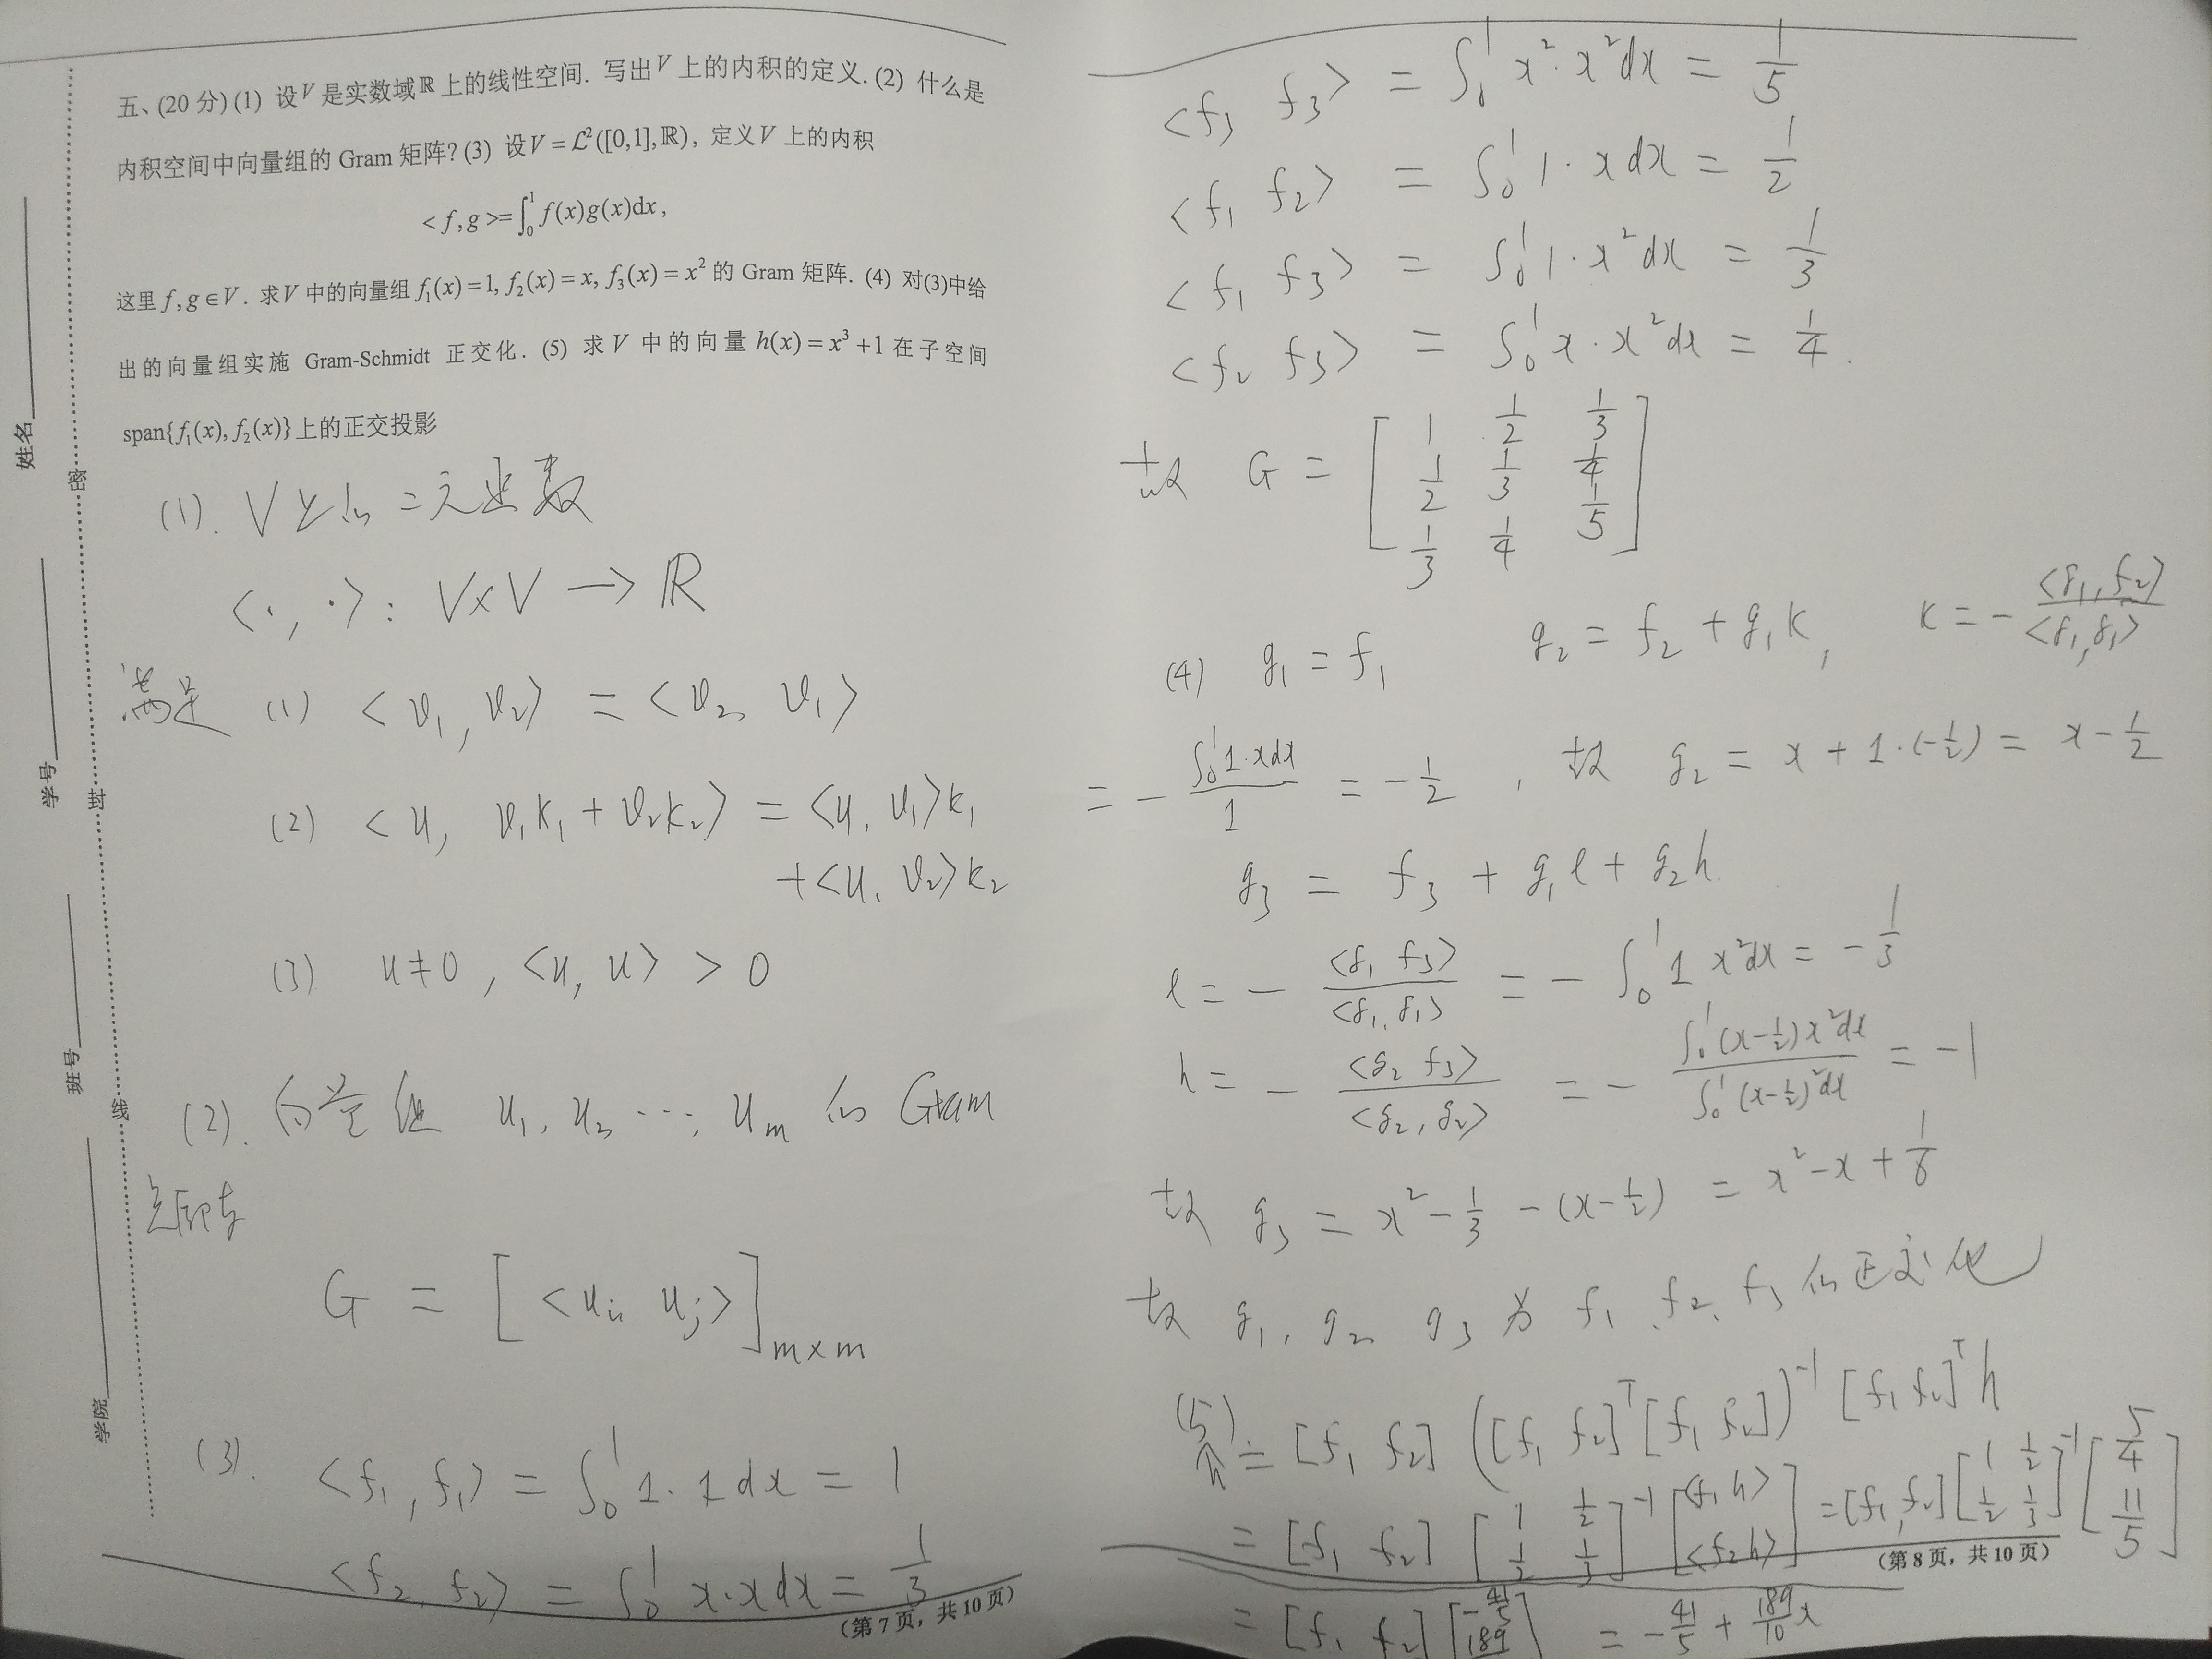 五、(20 分) (1) 设V是实数域ℝ上的线性空间. 写出V上的内积的定义. (2) 什么是
内积空间中向量组的 Gram 矩阵? (3) 设V=ℒ²([0,1],ℝ), 定义V上的内积
<f,g>=∫₀¹f(x)g(x)dx,
这里 f,g∈V. 求V中的向量组 f₁(x)=1, f₂(x)=x, f₃(x)=x² 的 Gram 矩阵. (4) 对(3)中给
出的向量组实施 Gram-Schmidt 正交化. (5) 求 V 中的向量 h(x)=x³+1 在子空间
span{f₁(x), f₂(x)}上的正交投影
(1). V上的二元函数
<·, ·>: V×V → ℝ
满足 (1) <v₁, v₂> = <v₂, v₁>
(2) <u, v₁k₁+v₂k₂> = <u, v₁>k₁
+<u, v₂>k₂
(3) u≠0, <u, u> > 0
(2). 向量组 u₁, u₂ ⋯, uₘ 的 Gram
矩阵
G = [<uᵢ, uⱼ>]ₘₓₘ
(3). <f₁, f₁> = ∫₀¹ 1·1 dx = 1
<f₂, f₂> = ∫₀¹ x·x dx = 1/3
(第 7 页, 共 10 页)
<f₃ f₃> = ∫₀¹ x²·x²dx = 1/5
<f₁ f₂> = ∫₀¹ 1·x dx = 1/2
<f₁ f₃> = ∫₀¹ 1·x²dx = 1/3
<f₂ f₃> = ∫₀¹ x·x²dx = 1/4.
故 G = [1 1/2 1/3
1/2 1/3 1/4
1/3 1/4 1/5]
(4) g₁ = f₁ g₂ = f₂ + g₁k, k = - <g₁, f₂>/<g₁, g₁>
= - ∫₀¹1·xdx/1 = -1/2, 故 g₂ = x + 1·(-1/2) = x - 1/2
g₃ = f₃ + g₁l + g₂h.
l = - <g₁ f₃>/<g₁, g₁> = - ∫₀¹ 1 x²dx = -1/3
h = - <g₂ f₃>/<g₂, g₂> = - ∫₀¹(x-1/2)x²dx/∫₀¹(x-1/2)²dx = -1
故 g₃ = x² - 1/3 - (x-1/2) = x² - x + 1/6
故 g₁, g₂, g₃ 为 f₁, f₂, f₃ 的正交化
(5) ĥ = [f₁ f₂] ([f₁ f₂]ᵀ[f₁ f₂])⁻¹ [f₁ f₂]ᵀh
= [f₁ f₂] [1 1/2; 1/2 1/3]⁻¹ [<f₁ h>; <f₂ h>] = [f₁, f₂] [1 1/2; 1/2 1/3]⁻¹ [5/4; 11/5]
(第 8 页, 共 10 页)
= [f₁ f₂] [-41/5; 189] = -41/5 + 189/10 x
姓名
学号
班号
学院
密
封
线